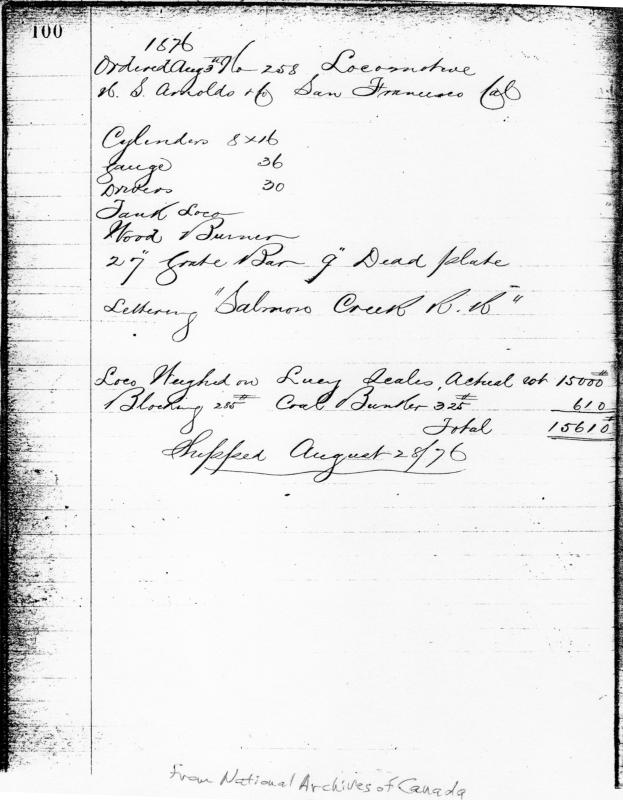 100
1876
Ordered Aug 3rd No 258 Locomotive
N. S. Arnolds & Co San Francisco Cal
Cylinders 8 x 16
Gauge 36
Drivers 30
Tank Loco
Wood Burner
27" Grate Bar 9" Dead plate
Lettering "Salmon Creek R. R"
Loco Weighed on Lucy Scales, Actual wt 15000#
Blocking 285# Coal Bunker 325# 610
Total 15610#
Shipped August 28/76
From National Archives of Canada